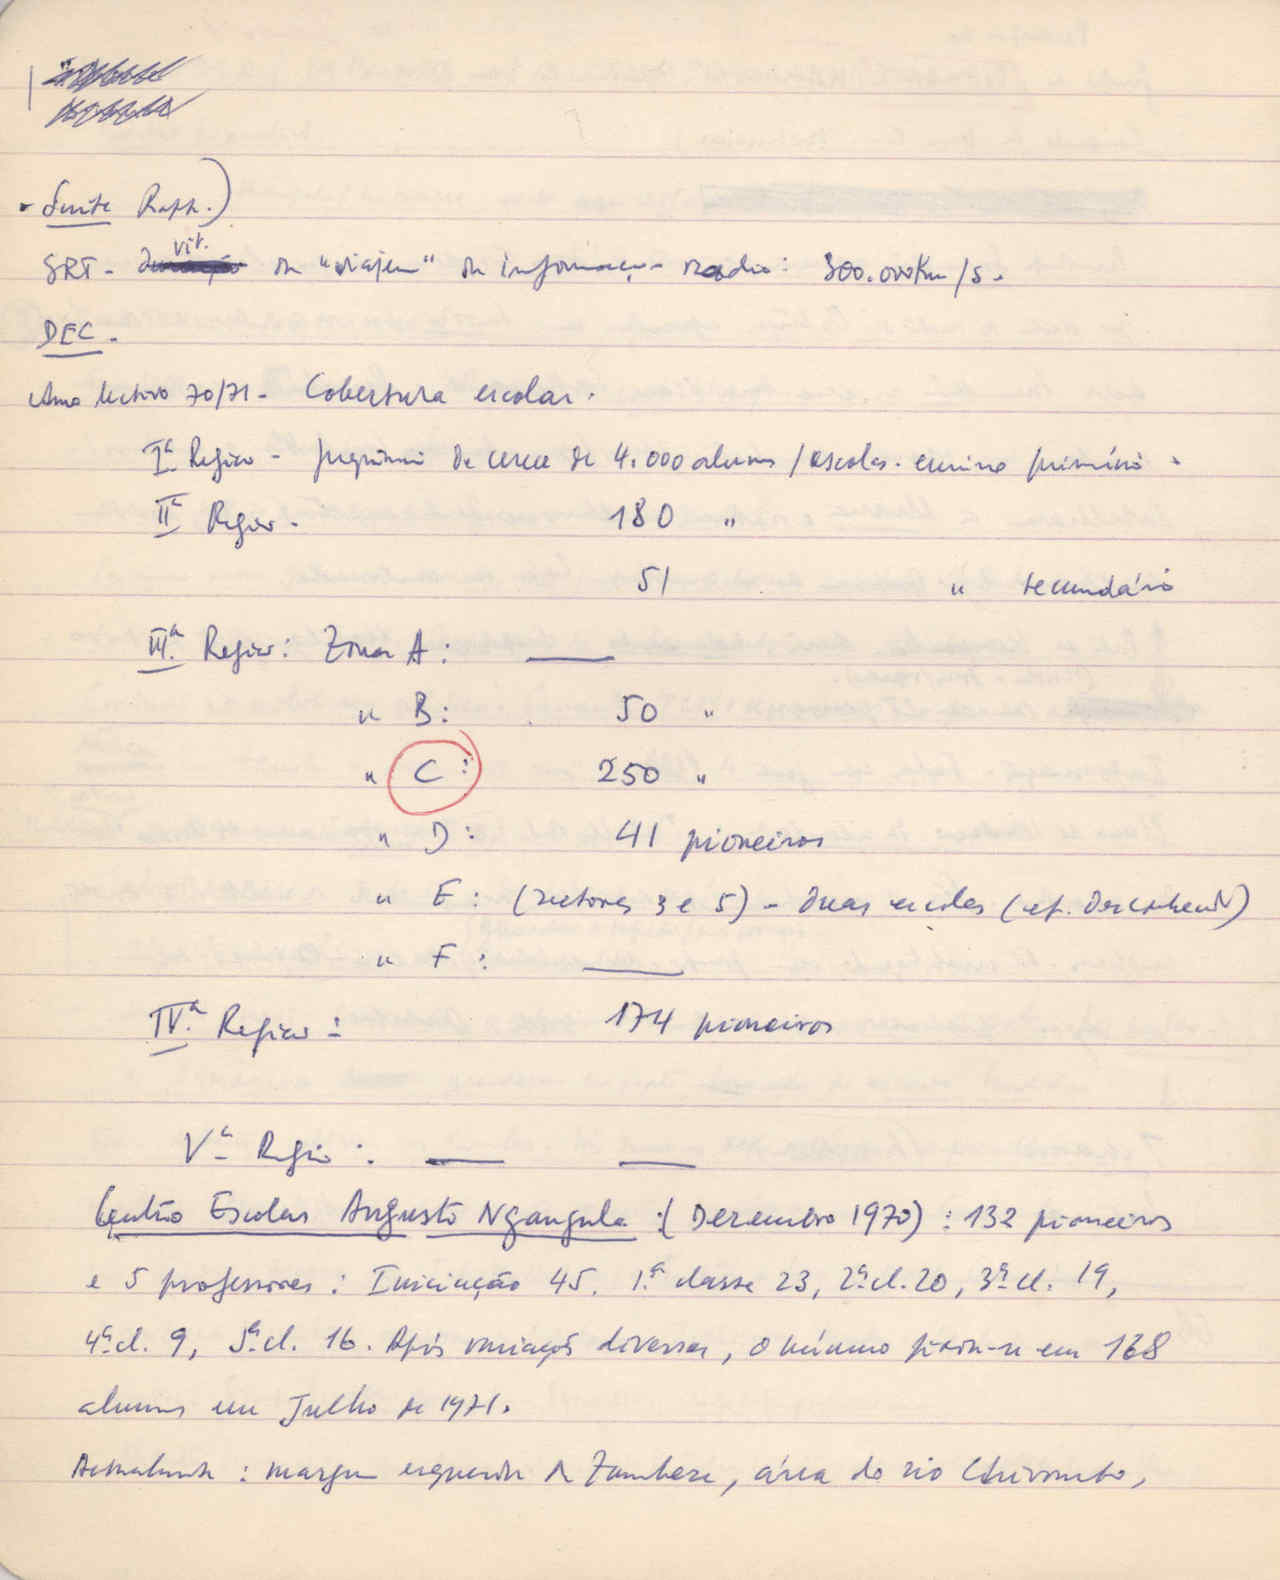 Suite Rapp.)
SRT - vit. de "viajem" de informação radio: 300.000 Km/s.
DEC.
Ano lectivo 70/71 - Cobertura escolar.
Iª Região - de cerca de 4.000 alunos / escolas. ensino primário.
IIª Região - 180 "
51 " secundário
IIIª Região: Zona A: —
" B: 50 "
" C: 250 "
" D: 41 pioneiros
" E: (sectores 3 e 5) - duas escolas
" F: —
IVª Região: 174 pioneiros
Vª Região: — —
Centro Escolar Augusto Ngangula: (Dezembro 1970): 132 pioneiros
e 5 professores: Iniciação 45. 1ª classe 23, 2ª cl. 20, 3ª cl. 19,
4ª cl. 9, 5ª cl. 16. Após variações diversas, o número fixou-se em 168
alunos em Julho de 1971.
Actualmente: margem esquerda do Zambeze, área do rio Chivumbo,